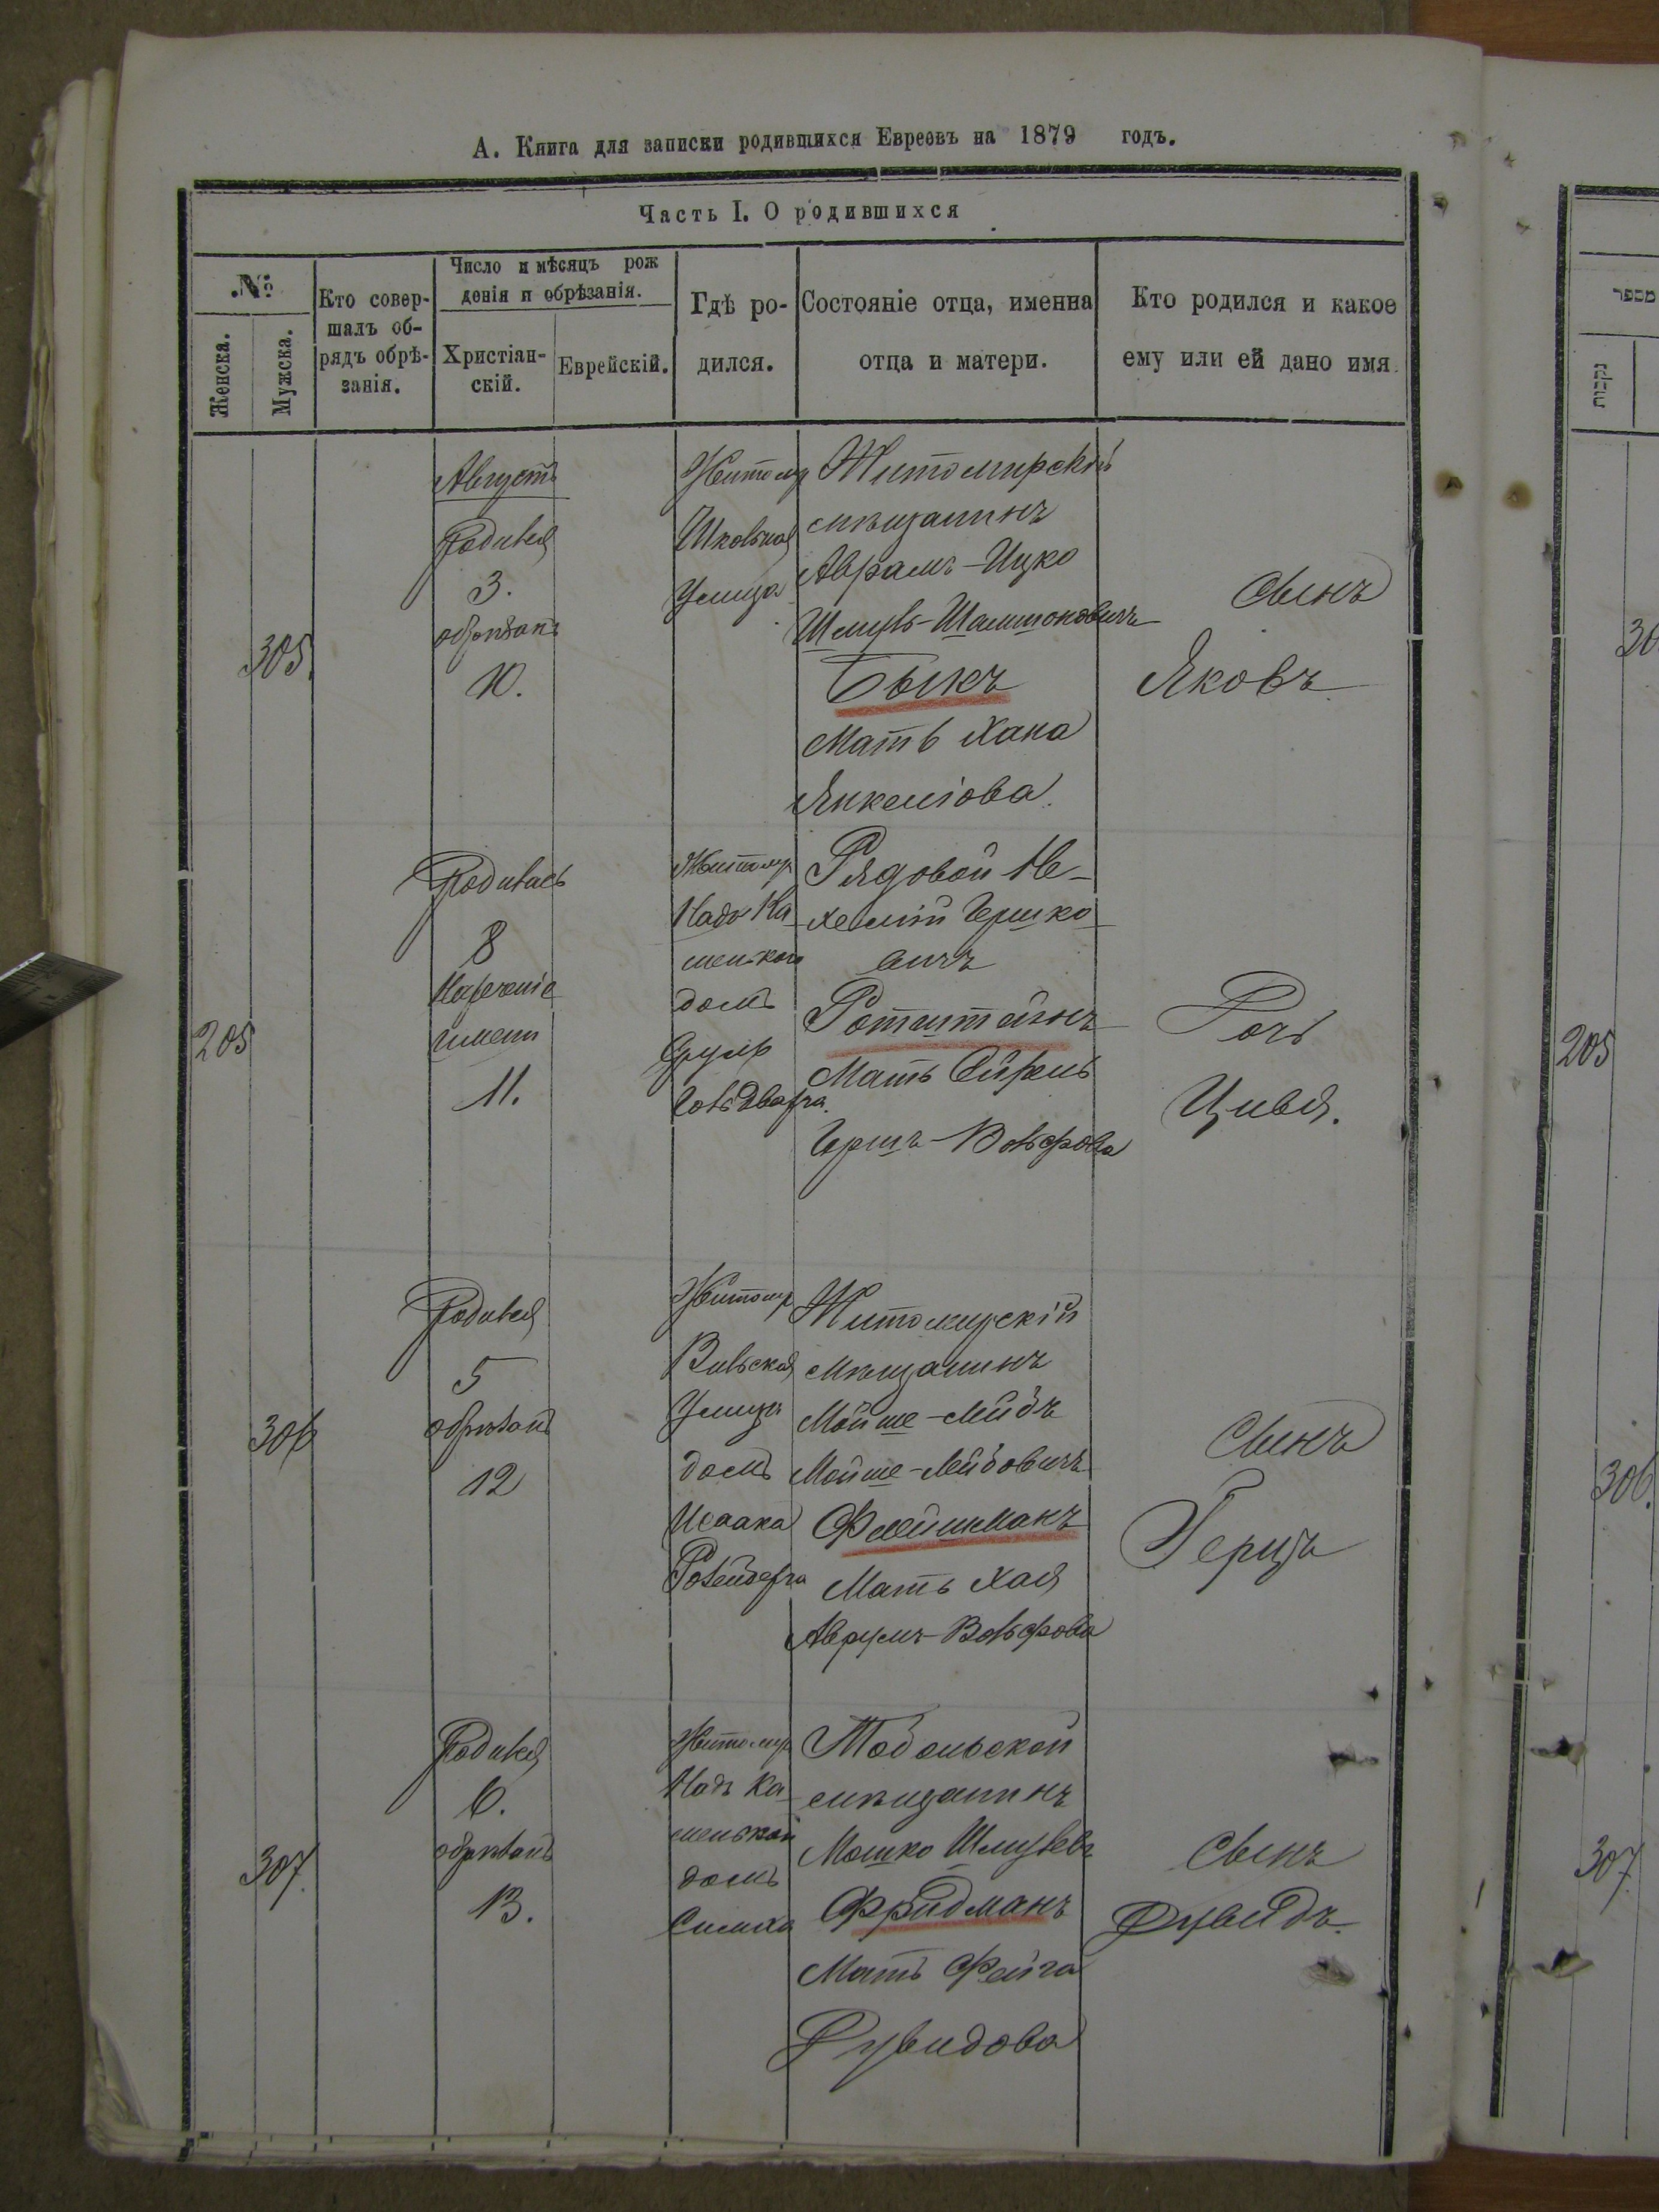 А. Книга для записки родившихся Евреевъ на 1879 годъ.
Часть I. О родившихся
№
Женска.
Мужска.
Кто совер-
шалъ об-
рядъ обрѣ-
занія.
Число и мѣсяцъ рож
денія и обрѣзанія.
Христіан-
скій.
Еврейскій.
Гдѣ ро-
дился.
Состояніе отца, именна
отца и матери.
Кто родился и какое
ему или ей дано имя.
305.
Августъ
Родився
3.
обрѣзанъ
10.
Житомир
Улица
Житомирскій
мѣщанинъ
Аврамъ-Ицко
Быкъ
Мать Хана
Янкеліова.
Сынъ
Яковъ
205
Родилась
8
Нареченіе
имени
11.
Житомир
Надъ Ка-
менкою
домъ
Рядовой Не-
хемій Гершко-
вичъ
Ротштейнъ
Мать
Гершъ-Вольфова
Дочь
Цивья.
306
Родився
5
обрѣзанъ
12
Житомир
Вильская
Улица
домъ
Исаака
Житомирскій
мѣщанинъ
Мойше-Лейбъ
Мойше-Лейбовичъ
Флейшманъ
Мать Хая
Аврумъ-Вольфова
Сынъ
Герцъ
307.
Родився
6.
обрѣзанъ
13.
Житомир
Надъ Ка-
менкой
домъ
мѣщанинъ
Мошко Шмулевъ
Фридманъ
Мать Фейга
Рувидова
Сынъ
Рувидъ.
מספר
נקבות
205
306.
307.